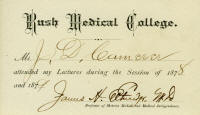 Rush Medical College.
Mr. J. D. Cameron
attended my Lectures during the Session of 1878
and 187
James H. Etheridge M.D.
Professor of Materia Medica and Medical Jurisprudence.